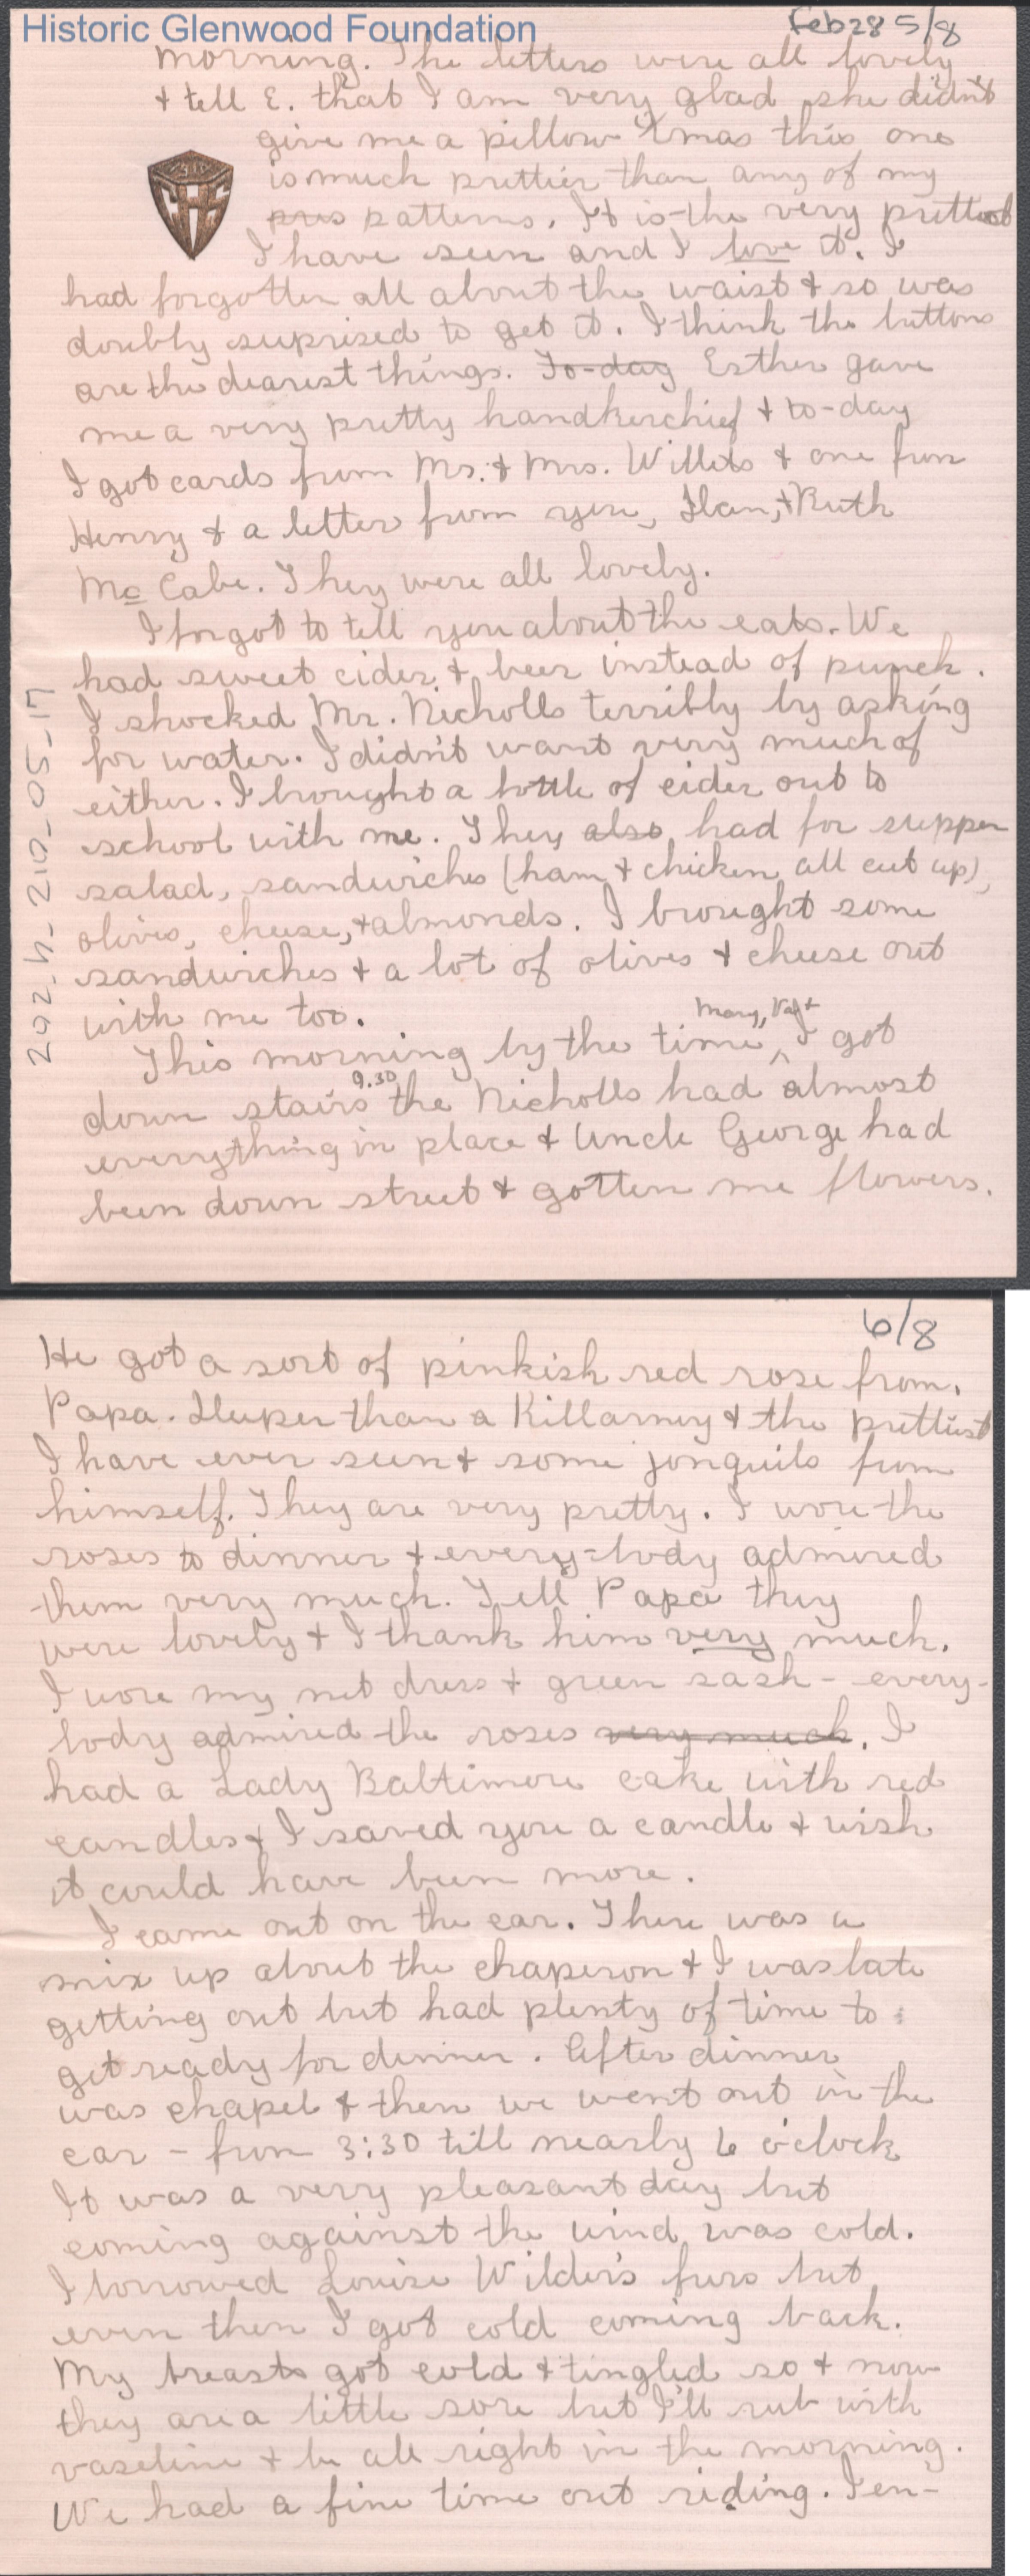 Historic Glenwood Foundation
Feb 28 5/8
morning. The letters were all lovely
+ tell E. that I am very glad she didn't
give me a pillow Xmas this one
is much prettier than any of my
pres patterns. It is the very prettiest
I have seen and I love it. I
had forgotten all about the waist + so was
doubly suprised to get it. I think the buttons
are the dearest things. To-day Esther gave
me a very pretty handkerchief + to-day
I got cards from Mr. + Mrs. Willets + one from
Henry + a letter from you, + Ruth
McCabe. They were all lovely.
I forgot to tell you about the eats. We
had sweet cider + beer instead of punch.
I shocked Mr. Nicholls terribly by asking
for water. I didn't want very much of
either. I brought a bottle of cider out to
school with me. They also had for supper
salad, sandwiches (ham + chicken all cut up),
olives, cheese, + almonds. I brought some
sandwiches + a lot of olives + cheese out
with me too.
Mary, +
This morning by the time ^ I got
9.30
down stairs the Nicholls had almost
everything in place + Uncle George had
been down street + gotten me flowers.
202_h_210_05_17
6/8
He got a sort of pinkish red rose from
Papa. Deeper than a Killarney + the prettiest
I have ever seen + some jonquils from
himself. They are very pretty. I wore the
roses to dinner + every-body admired
them very much. Tell Papa they
were lovely + I thank him very much.
I wore my net dress + green sash - every-
body admired the roses very much. I
had a Lady Baltimore cake with red
candles + I saved you a candle + wish
it could have been more.
I came out on the car. There was a
mix up about the chaperon + I was late
getting out but had plenty of time to
get ready for dinner. After dinner
was chapel + then we went out in the
car - from 3:30 till nearly 6 o'clock
It was a very pleasant day but
coming against the wind was cold.
I borrowed Louise Wilder's furs but
even then I got cold coming back.
My breasts got cold + tingled so + now
they are a little sore but I'll rub with
vaseline + be all right in the morning.
We had a fine time out riding. I en-